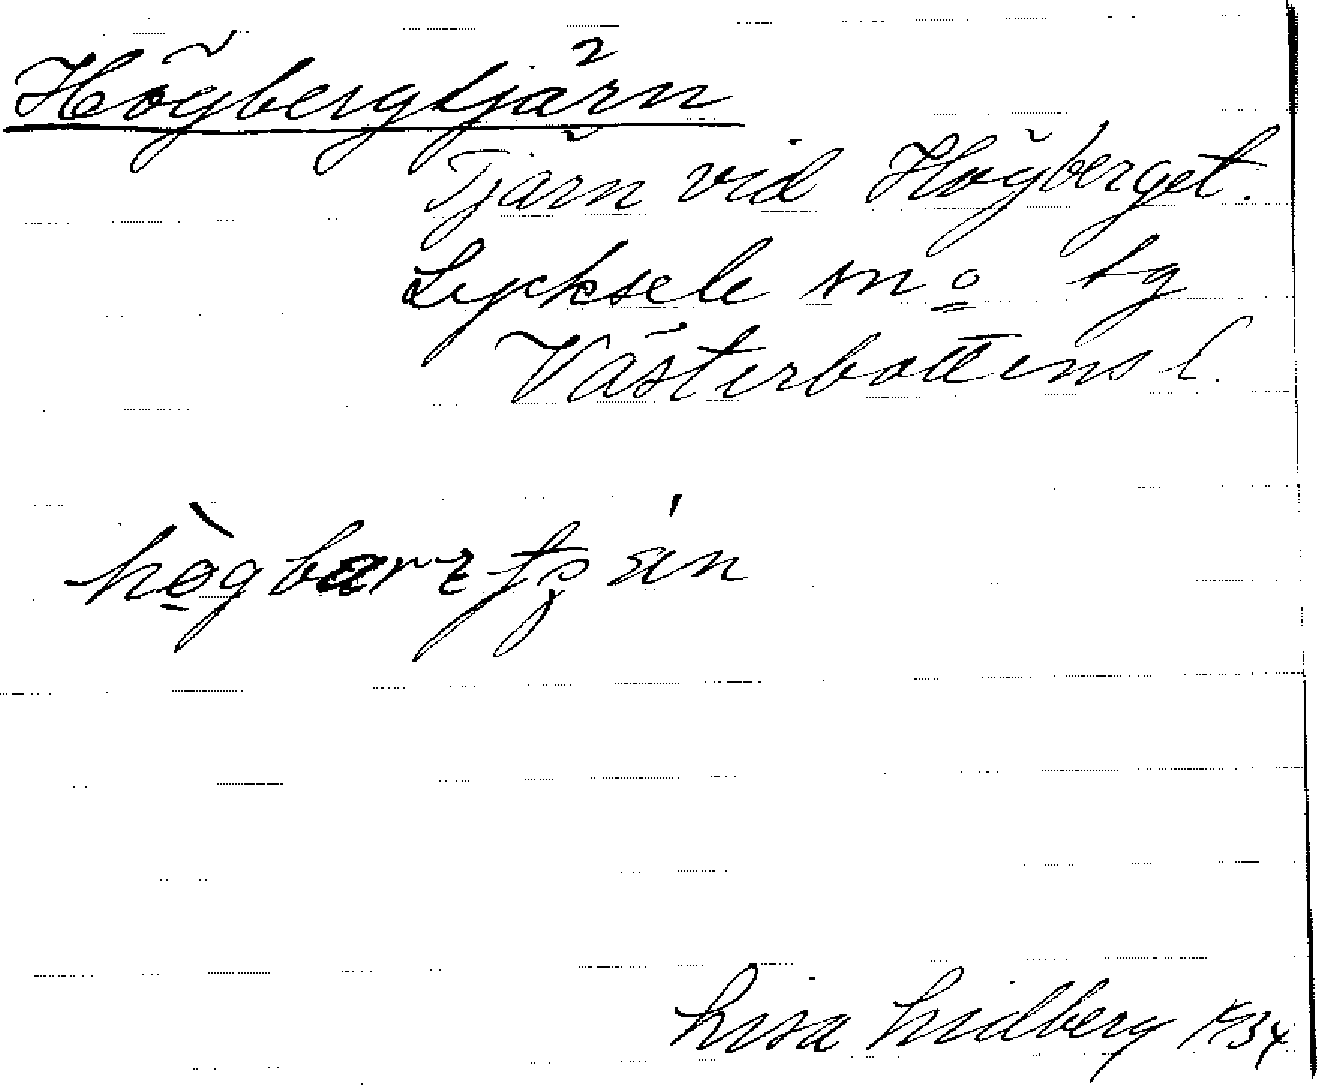 Högbergtjärn
Tjärn vid Högberget.
Lycksele sn o. tg
Västerbottens l.
Lisa Lidberg 1934